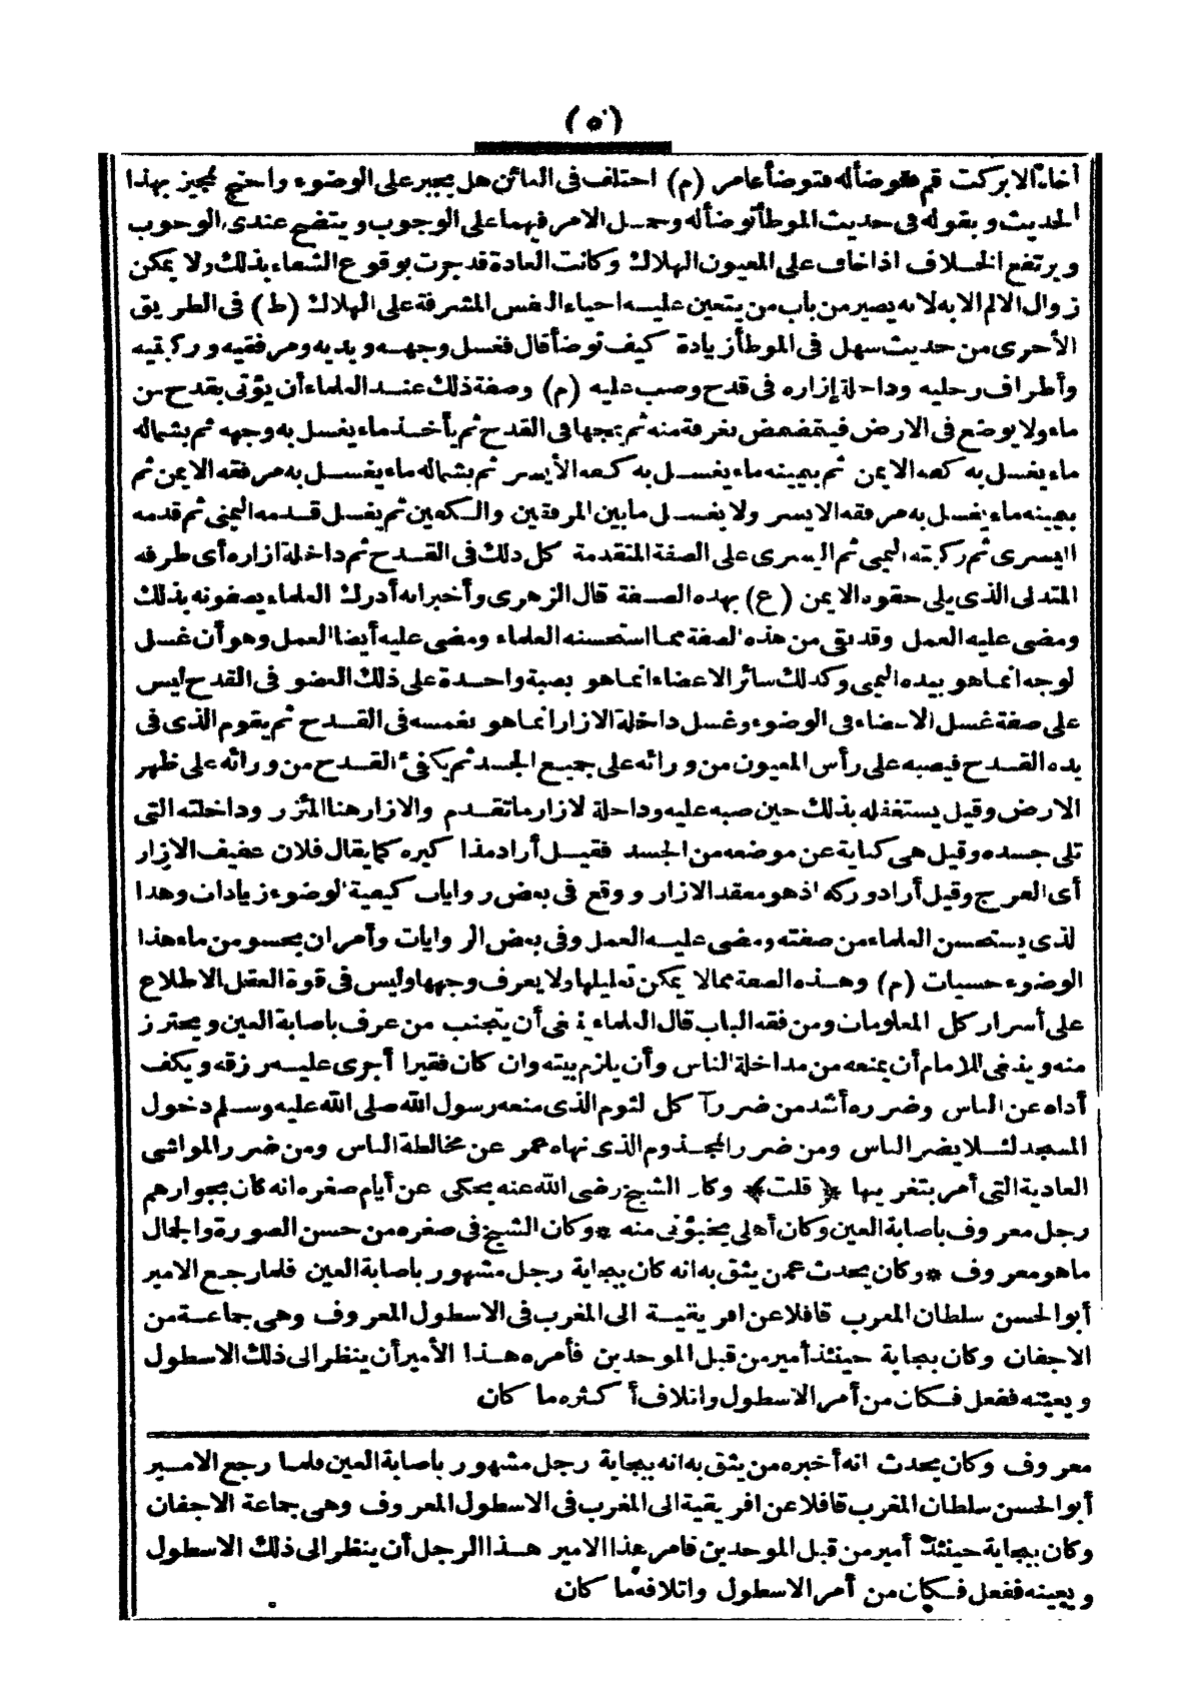 (٥)
أخاه ألا بركت قم فتوضأ له فتوضأ عامر (م) اختلف فى العائن هل يجبر على الوضوء واحتج مجيز بهذا
الحديث و بقوله فى حديث الموطأ توضأ له وحمل الامر فيهما على الوجوب و يتضح عندى الوجوب
و يرتفع الخلاف اذا خاف على المعيون الهلاك وكانت العادة قد جرت بوقوع الشفاء بذلك ولا يمكن
زوال الالم الا به لانه يصير من باب من يتعين عليه احياء النفس المشرفة على الهلاك (ط) فى الطريق
الأخرى من حديث سهل فى الموطأ زيادة كيف توضأ قال فغسل وجهه ويديه ومرفقيه و ركبتيه
وأطراف رجليه وداخلة إزاره فى قدح وصب عليه (م) وصفة ذلك عند العلماء أن يؤتى بقدح من
ماء ولا يوضع فى الارض فيتمضمض بغرفة منه ثم يمجها فى القدح ثم يأخذ ماء يغسل به وجهه ثم بشماله
ماء يغسل به كفه الايمن ثم بيمينه ماء يغسل به كفه الأيسر ثم بشماله ماء يغسل به مرفقه الايمن ثم
بيمينه ماء يغسل به مرفقه الايسر ولا يغسل ما بين المرفقين والكعبين ثم يغسل قدمه اليمنى ثم قدمه
اليسرى ثم ركبته اليمنى ثم اليسرى على الصفة المتقدمة كل ذلك فى القدح ثم داخلة ازاره أى طرفه
المتدلى الذى يلى حقوه الايمن (ع) بهذه الصفة قال الزهرى وأخبر انه أدرك العلماء يصفونه بذلك
ومضى عليه العمل وقد بقى من هذه الصفة مما استحسنه العلماء ومضى عليه أيضا العمل وهو أن غسل
لوجه انما هو بيده اليمنى وكذلك سائر الاعضاء انما هو بصبة واحدة على ذلك العضو فى القدح ليس
على صفة غسل الاعضاء فى الوضوء وغسل داخلة الازار انما هو بغمسه فى القدح ثم يقوم الذى فى
يده القدح فيصبه على رأس المعيون من و رائه على جميع الجسد ثم يكفئ القدح من و رائه على ظهر
الارض وقيل يستغفله بذلك حين صبه عليه وداخلة لازار ما تقدم والازار هنا المئزر وداخلته التى
تلى جسده وقيل هى كناية عن موضعه من الجسد فقيل أراد مذا كيره كما يقال فلان عفيف الازار
أى الفرج وقيل أراد وركه اذ هو معقد الازار و وقع فى بعض روايات كيفية الوضوء زيادات وهذا
لذى يستحسن العلماء من صفته ومضى عليه العمل وفى بعض الر وايات وأمر ان يحسو من ماء هذا
الوضوء حسيات (م) وهذه الصفة مما لا يمكن تعليلها ولا يعرف وجهها وليس فى قوة العقل الاطلاع
على أسرار كل المعلومات ومن فقه الباب قال العلماء ينبغى أن يتجنب من عرف باصابة العين ويحترز
منه وينبغى للامام أن يمنعه من مداخلة الناس وأن يلزم بيته وان كان فقيرا أجرى عليه رزقه و يكف
أداه عن الناس وضرره أشد من ضرر آكل لثوم الذى منعه رسول الله صلى الله عليه وسلم دخول
المسجد لئلا يضر الناس ومن ضر ر المجذوم الذى نهاه عمر عن مخالطة الناس ومن ضر ر المواشى
العادية التى أمر بتغر يبها ﴿قلت﴾ وكان الشيخ رضى الله عنه يحكى عن أيام صغره انه كان بجوارهم
رجل معر وف باصابة العين وكان أهلى يخبؤنى منه * وكان الشيخ فى صغره من حسن الصورة والجمال
ما هو معر وف * وكان يحدث عمن يثق به انه كان ببجاية رجل مشهور باصابة العين فلما رجع الامير
أبوالحسن سلطان المغرب قافلا عن افريقية الى المغرب فى الاسطول المعر وف وهى جماعة من
الاجفان وكان ببجاية حينئذ أمير من قبل الموحدين فأمره هذا الأمير أن ينظر الى ذلك الاسطول
و يعينه ففعل فكان من أمر الاسطول واتلاف أكثره ما كان
معر وف وكان يحدث انه أخبره من يثق به انه ببجاية رجل مشهور باصابة العين فلما رجع الامير
أبوالحسن سلطان المغرب قافلا عن افريقية الى المغرب فى الاسطول المعر وف وهى جماعة الاجفان
وكان ببجاية حينئذ أمير من قبل الموحدين فامر هذا الامير هذا الرجل أن ينظر الى ذلك الاسطول
و يعينه ففعل فكان من أمر الاسطول واتلافه ما كان